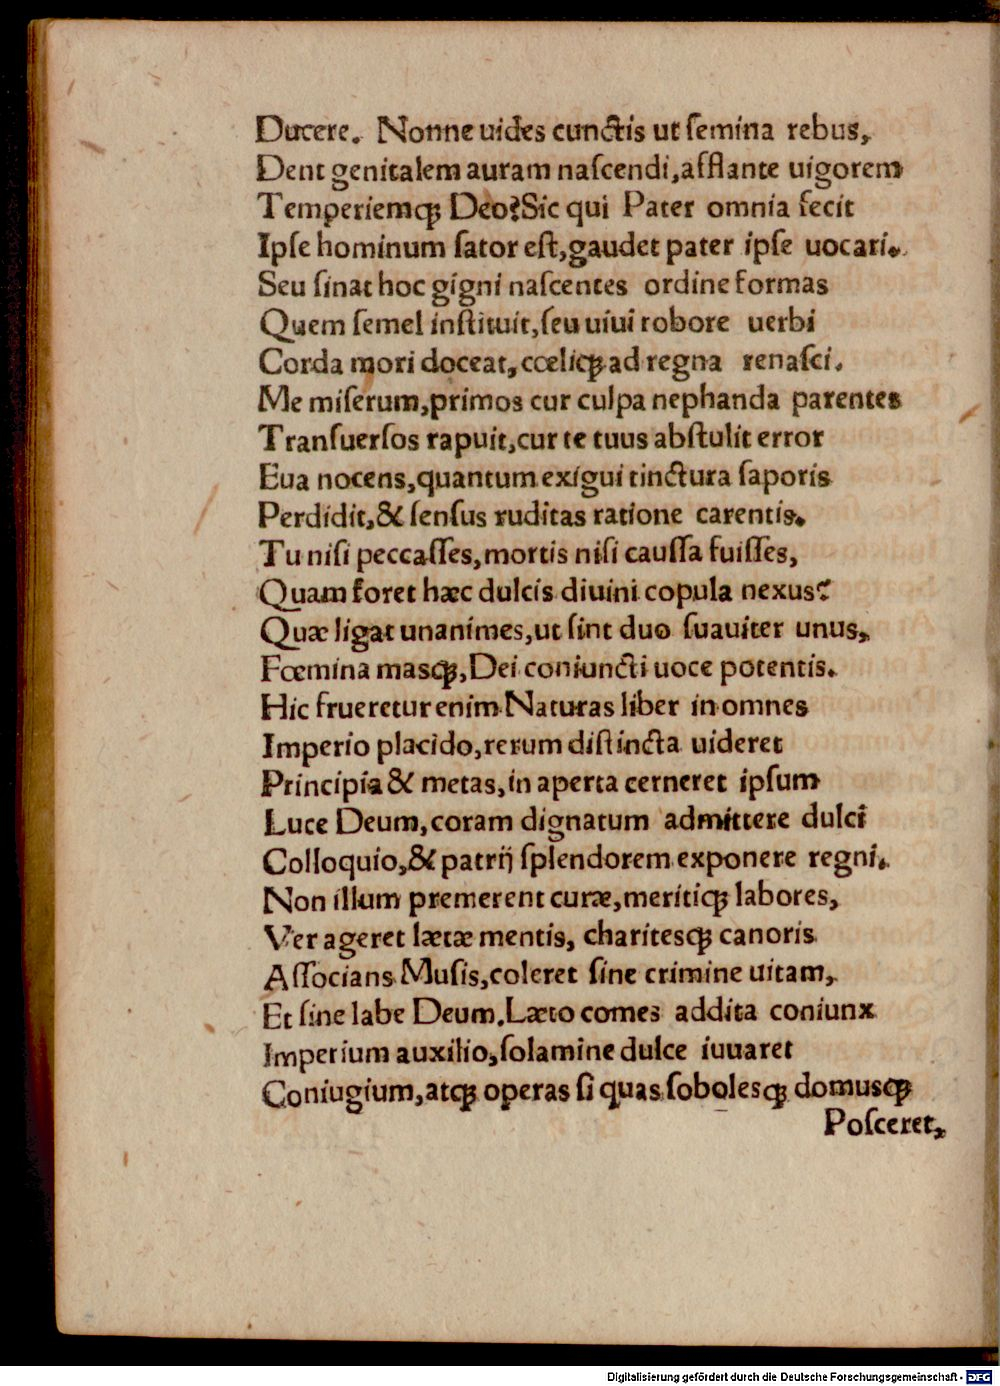 Ducere. Nonne uides cunctis ut ſemina rebus,
Dent genitalem auram naſcendi, afflante uigorem
Temperiemq́; Deo? Sic qui Pater omnia fecit
Ipſe hominum ſator eſt, gaudet pater ipſe uocari.
Seu ſinat hoc gigni naſcentes ordine formas
Quem ſemel inſtituit, ſeu uiui robore uerbi
Corda mori doceat, cœliq́; ad regna renaſci.
Me miſerum, primos cur culpa nephanda parentes
Tranſuerſos rapuit, cur te tuus abſtulit error
Eua nocens, quantum exigui tinctura ſaporis
Perdidit, & ſenſus ruditas ratione carentis.
Tu niſi peccaſſes, mortis niſi cauſſa fuiſſes,
Quam foret hæc dulcis diuini copula nexus?
Quæ ligat unanimes, ut ſint duo ſuauiter unus,
Fœmina masq́;, Dei coniuncti uoce potentis.
Hic frueretur enim Naturas liber in omnes
Imperio placido, rerum diſtincta uideret
Principia & metas, in aperta cerneret ipſum
Luce Deum, coram dignatum admittere dulci
Colloquio, & patrij ſplendorem exponere regni.
Non illum premerent curæ, meritiq́; labores,
Ver ageret lætæ mentis, charitesq́; canoris
Aſſocians Muſis, coleret ſine crimine uitam,
Et ſine labe Deum. Læto comes addita coniunx
Imperium auxilio, ſolamine dulce iuuaret
Coniugium, atq́; operas ſi quas ſobolesq́; domusq́;
Poſceret,
Digitalisierung gefördert durch die Deutsche Forschungsgemeinschaft - DFG